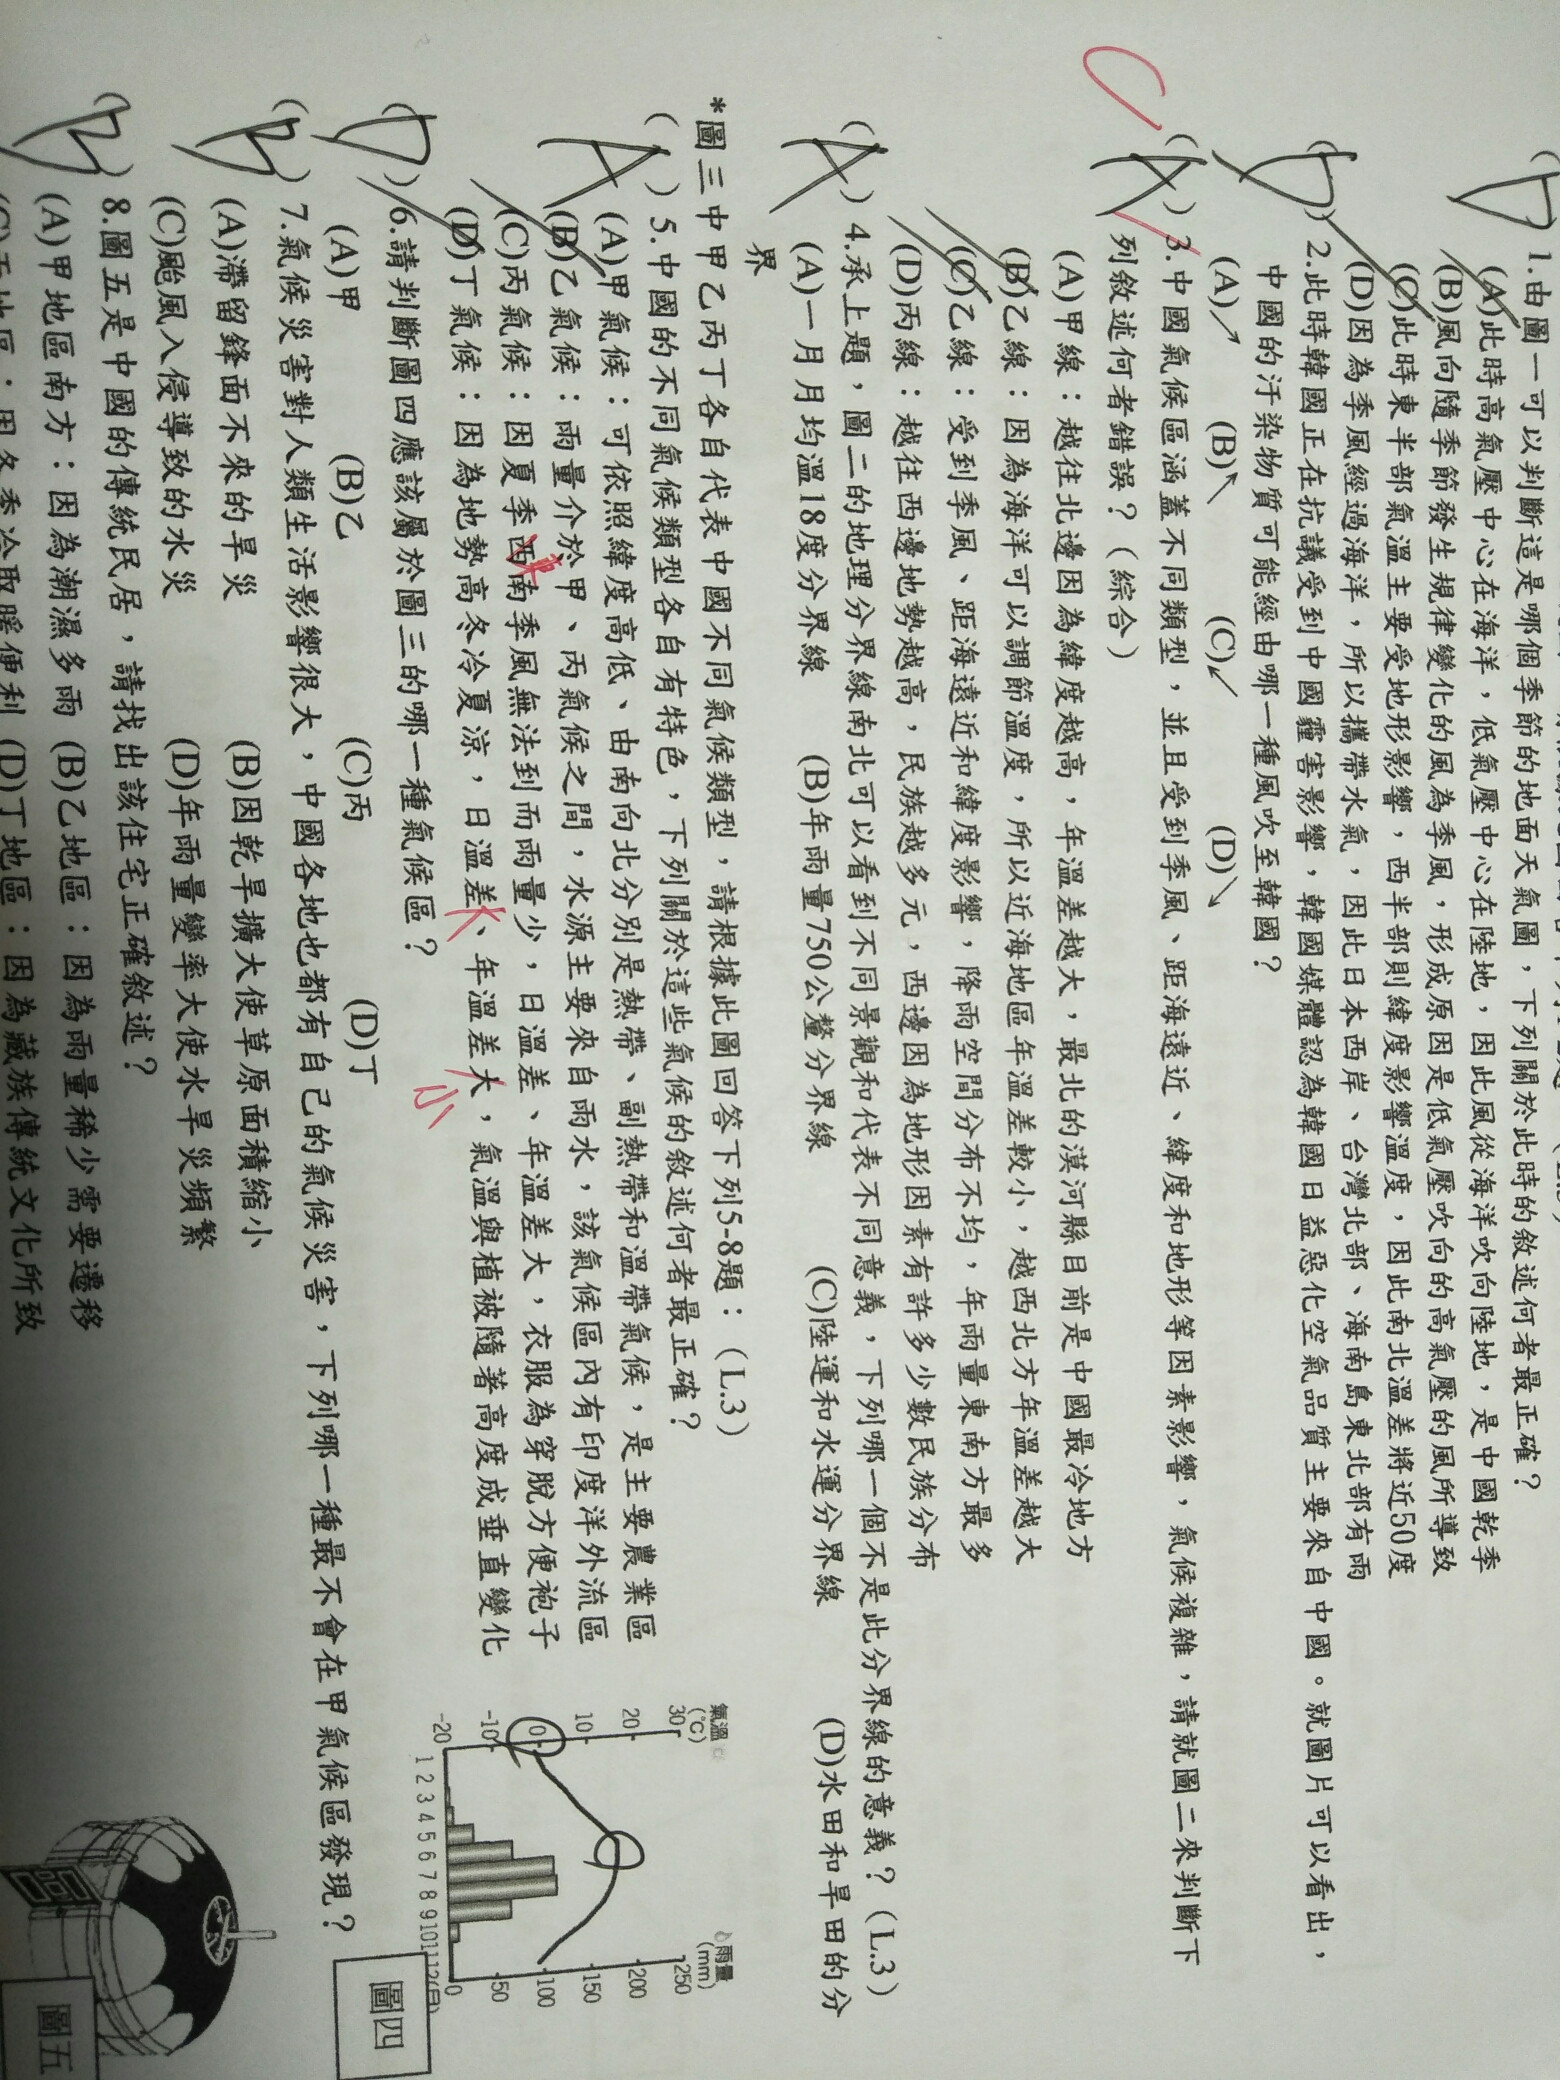 (D) 1.由圖一可以判斷這是哪個季節的地面天氣圖，下列關於此時的敘述何者最正確？
(A)此時高氣壓中心在海洋，低氣壓中心在陸地，因此風從海洋吹向陸地，是中國乾季
(B)風向隨季節發生規律變化的風為季風，形成原因是低氣壓吹向的高氣壓的風所導致
(C)此時東半部氣溫主要受地形影響，西半部則緯度影響溫度，因此南北溫差將近50度
(D)因為季風經過海洋，所以攜帶水氣，因此日本西岸、台灣北部、海南島東北部有雨
(D) 2.此時韓國正在抗議受到中國霾害影響，韓國媒體認為韓國日益惡化空氣品質主要來自中國。就圖片可以看出，
中國的汙染物質可能經由哪一種風吹至韓國？
(A)↗ (B)↖ (C)↙ (D)↘
(A) 3.中國氣候區涵蓋不同類型，並且受到季風、距海遠近、緯度和地形等因素影響，氣候複雜，請就圖二來判斷下
列敘述何者錯誤？(綜合)
(A)甲線：越往北邊因為緯度越高，年溫差越大，最北的漠河縣目前是中國最冷地方
(B)乙線：因為海洋可以調節溫度，所以近海地區年溫差較小，越西北方年溫差越大
(C)乙線：受到季風、距海遠近和緯度影響，降雨空間分布不均，年雨量東南方最多
(D)丙線：越往西邊地勢越高，民族越多元，西邊因為地形因素有許多少數民族分布
(A) 4.承上題，圖二的地理分界線南北可以看到不同景觀和代表不同意義，下列哪一個不是此分界線的意義？(L.3)
(A)一月月均溫18度分界線 (B)年雨量750公釐分界線 (C)陸運和水運分界線 (D)水田和旱田的分
界
*圖三中甲乙丙丁各自代表中國不同氣候類型，請根據此圖回答下列5-8題：(L.3)
(A) 5.中國的不同氣候類型各自有特色，下列關於這些氣候的敘述何者最正確？
(A)甲氣候：可依照緯度高低、由南向北分別是熱帶、副熱帶和溫帶氣候，是主要農業區
(B)乙氣候：雨量介於甲、丙氣候之間，水源主要來自雨水，該氣候區內有印度洋外流區
(C)丙氣候：因夏季西南季風無法到而雨量少，日溫差、年溫差大，衣服為穿脫方便袍子
(D)丁氣候：因為地勢高冬冷夏涼，日溫差、年溫差大，氣溫與植被隨著高度成垂直變化
大
小
(D) 6.請判斷圖四應該屬於圖三的哪一種氣候區？
(A)甲 (B)乙 (C)丙 (D)丁
(B) 7.氣候災害對人類生活影響很大，中國各地也都有自己的氣候災害，下列哪一種最不會在甲氣候區發現？
(A)滯留鋒面不來的旱災 (B)因乾旱擴大使草原面積縮小
(C)颱風入侵導致的水災 (D)年雨量變率大使水旱災頻繁
(B) 8.圖五是中國的傳統民居，請找出該住宅正確敘述？
(A)甲地區南方：因為潮濕多雨 (B)乙地區：因為雨量稀少需要遷移
(D)丁地區：因為藏族傳統文化所致
氣溫(℃)
30
20
10
0
-10
-20
雨量(mm)
250
200
150
100
50
0
1 2 3 4 5 6 7 8 9 10 11 12(月)
圖四
圖五